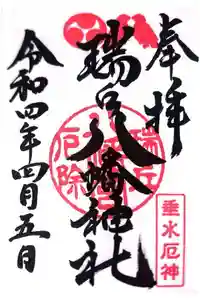 奉拝
瑞丘八幡神社
令和四年四月五日
瑞丘
厄除
垂水厄神